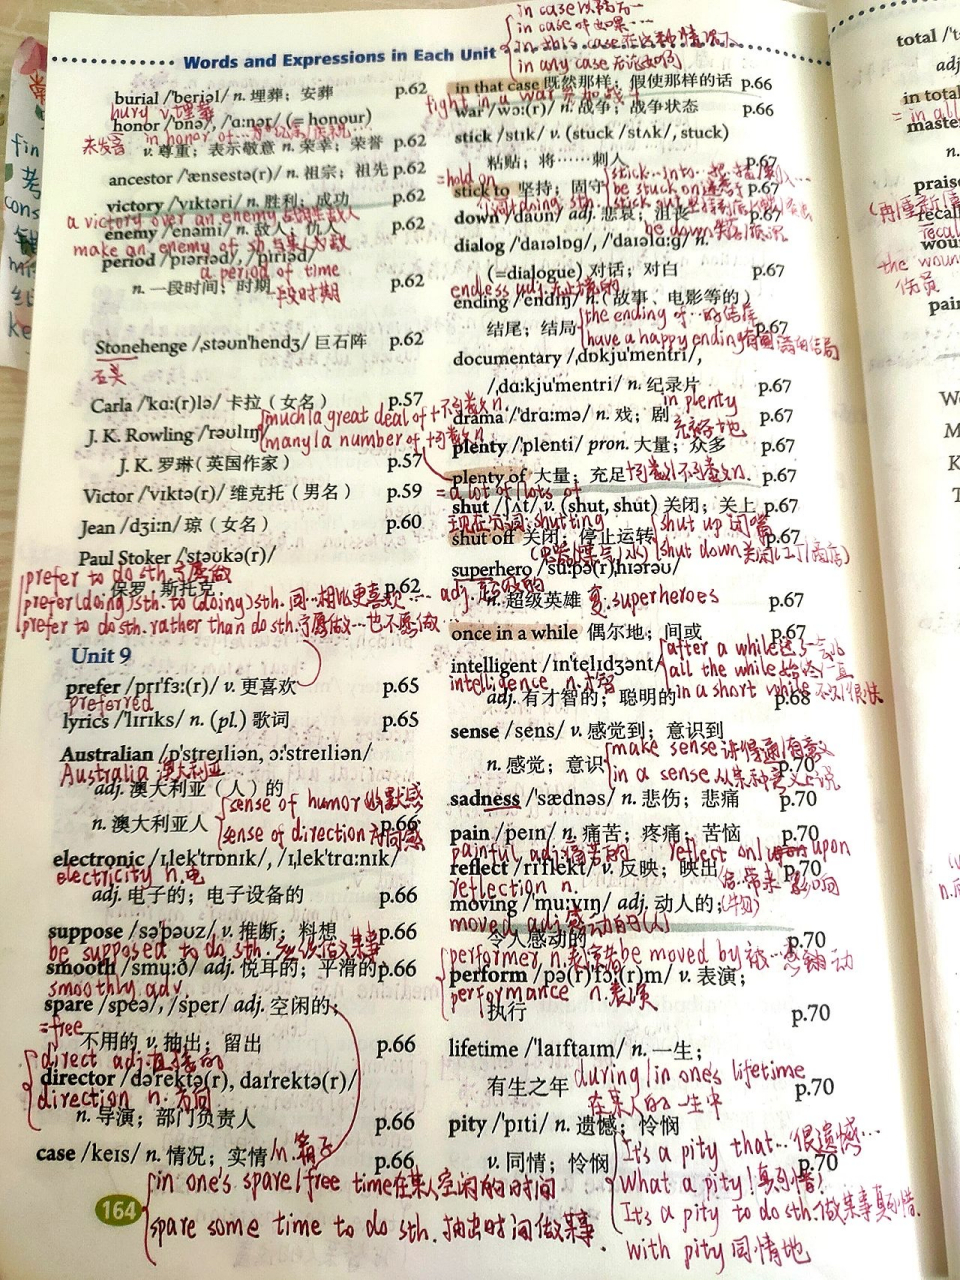 Words and Expressions in Each Unit
burial /'beriəl/ n. 埋葬；安葬 p.62
bury v.埋葬
honor /'ɒnə/, /'ɑ:nər/ (= honour)
未发音 in honor of…
v. 尊重；表示敬意 n. 荣幸；荣誉 p.62
ancestor /'ænsestə(r)/ n. 祖宗；祖先 p.62
victory /'vɪktəri/ n. 胜利；成功 p.62
a victory over an enemy 战胜敌人
enemy /'enəmi/ n. 敌人；仇人 p.62
make an enemy of sb 与某人为敌
period /'pɪəriəd/, /'pɪriəd/
a period of time
n. 一段时间；时期 p.62
一段时期
Stonehenge /ˌstəʊn'hendʒ/ 巨石阵 p.62
石头
Carla /'kɑ:(r)lə/ 卡拉（女名） p.57
much/a great deal of +不可数n.
J. K. Rowling /'rəʊlɪŋ/
many/a number of +可数n.
J. K. 罗琳（英国作家） p.57
Victor /'vɪktə(r)/ 维克托（男名） p.59
Jean /dʒi:n/ 琼（女名） p.60
Paul Stoker /'stəʊkə(r)/
prefer to do sth.宁愿做
保罗·斯托克 p.62
prefer (doing) sth. to (doing) sth. 同…相比更喜欢…
prefer to do sth. rather than do sth.宁愿做…也不愿做…
Unit 9
prefer /prɪ'fɜ:(r)/ v. 更喜欢 p.65
preferred
lyrics /'lɪrɪks/ n. (pl.) 歌词 p.65
Australian /ɒ'streɪliən, ɔ:'streɪliən/
Australia 澳大利亚
adj. 澳大利亚（人）的
sense of humor 幽默感
n. 澳大利亚人 p.66
sense of direction 方向感
electronic /ɪˌlek'trɒnɪk/, /ɪˌlek'trɑ:nɪk/
electricity n.电
adj. 电子的；电子设备的 p.66
suppose /sə'pəʊz/ v. 推断；料想 p.66
be supposed to do sth. 应该做某事
smooth /smu:ð/ adj. 悦耳的；平滑的 p.66
smoothly adv.
spare /speə/, /sper/ adj. 空闲的；
=free
不用的 v. 抽出；留出 p.66
direct adj.直接的
director /də'rektə(r), daɪ'rektə(r)/
direction n. 方向
n. 导演；部门负责人 p.66
case /keɪs/ n. 情况；实情 /n. 箱子 p.66
in one's spare/free time在某人空闲的时间
spare some time to do sth. 抽出时间做某事.
164
in case 以防万一
in case of 如果…
in this case 在这种情况下
in any case 无论如何
in that case 既然那样；假使那样的话 p.66
fight in a war
war /wɔ:(r)/ n. 战争；战争状态 p.66
stick /stɪk/ v. (stuck /stʌk/, stuck)
粘贴；将……刺入 p.67
=hold on
stick…into…
stick to 坚持；固守 p.67
be stuck on
down /daʊn/ adj. 悲哀；沮丧 p.67
dialog /'daɪəlɒg/, /'daɪəlɑ:g/ n.
(=dialogue) 对话；对白 p.67
endless adj.无止境的
ending /'endɪŋ/ n. (故事、电影等的)
the ending of …的结尾
结尾；结局 p.67
have a happy ending有圆满的结局
documentary /ˌdɒkju'mentri/,
/ˌdɑ:kju'mentri/ n. 纪录片 p.67
in plenty
drama /'drɑ:mə/ n. 戏；剧 p.67
plenty /'plenti/ pron. 大量；众多 p.67
plenty of 大量；充足 +可数n/不可数n. p.67
=a lot of/lots of
shut /ʃʌt/ v. (shut, shut) 关闭；关上 p.67
现在分词:shutting
shut up 闭嘴
shut off 关闭；停止运转 p.67
shut down 关闭(工厂/商店)
superhero /'su:pə(r)ˌhɪərəʊ/
adj.超级的
n. 超级英雄 复.superheroes p.67
once in a while 偶尔地；间或 p.67
after a while
intelligent /ɪn'telɪdʒənt/
all the while 始终/一直
intelligence n.才智
adj. 有才智的；聪明的 p.68
in a short while 不久/很快
sense /sens/ v. 感觉到；意识到
make sense 讲得通/有意义
n. 感觉；意识 p.70
in a sense 从某种意义上说
sadness /'sædnəs/ n. 悲伤；悲痛 p.70
pain /peɪn/ n. 痛苦；疼痛；苦恼 p.70
painful adj.痛苦的
reflect on/upon
reflect /rɪ'flekt/ v. 反映；映出 p.70
reflection n.
moving /'mu:vɪŋ/ adj. 动人的；(物)
moved adj.感动的(人)
令人感动的 p.70
performer n.表演者
be moved by 被…感动
perform /pə(r)'fɔ:(r)m/ v. 表演；
performance n.表演
执行 p.70
lifetime /'laɪftaɪm/ n. 一生；
有生之年 p.70
during/in one's lifetime
在某人的一生中
pity /'pɪti/ n. 遗憾；怜悯
It's a pity that… 很遗憾…
v. 同情；怜悯 p.70
What a pity!真可惜!
It's a pity to do sth.做某事真可惜.
with pity 同情地
total /'t
adj
in total
= in all
master
n.
praise
recall
recal
wound
the woun
伤员
pain